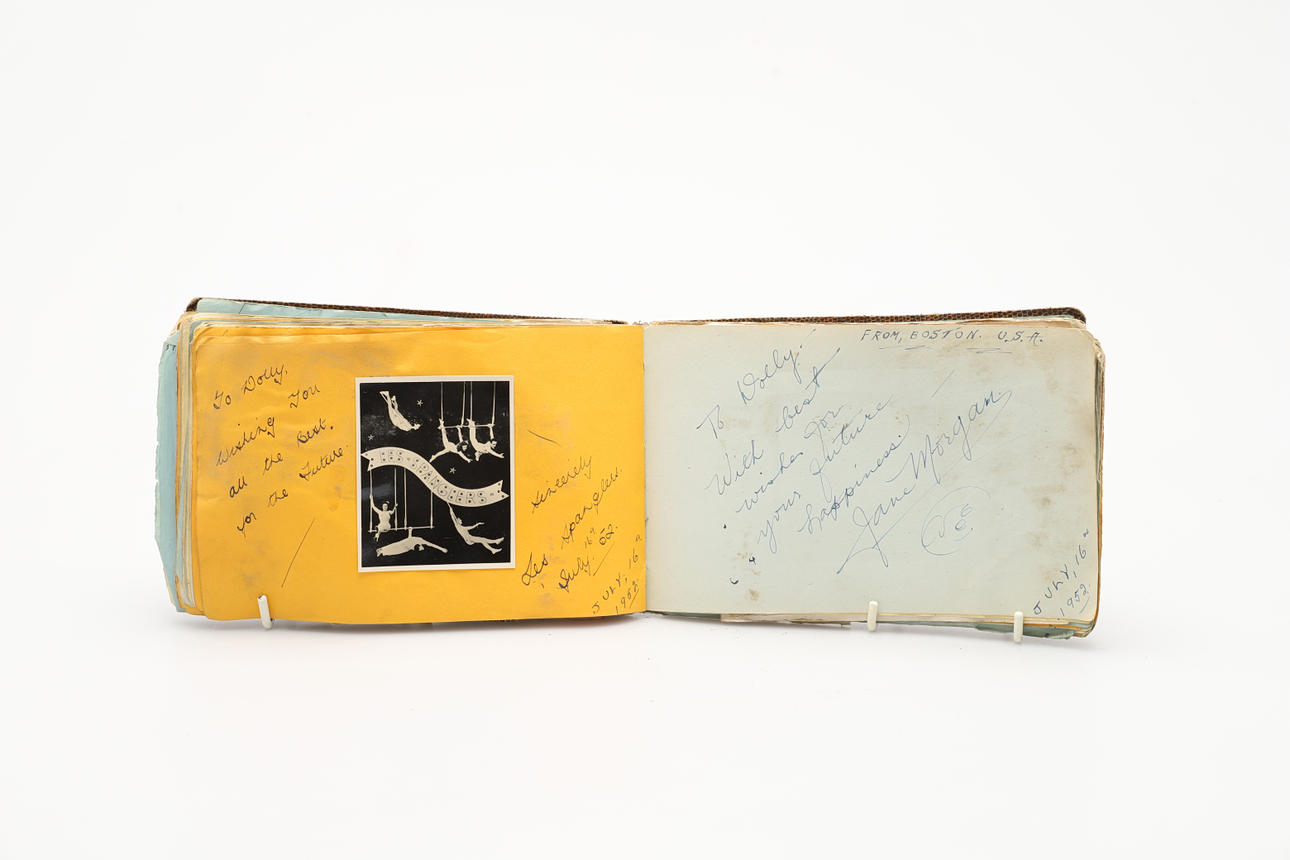 To Dolly,
Wishing You
all the Best.
for the Future.
Sincerely
Les Spanglers.
July. 16th 52.
JULY, 16th
1952
FROM, BOSTON. U.S.A.
To Dolly!
With best
wishes for
your future
happiness!
Jane Morgan
JULY, 16th
1952.